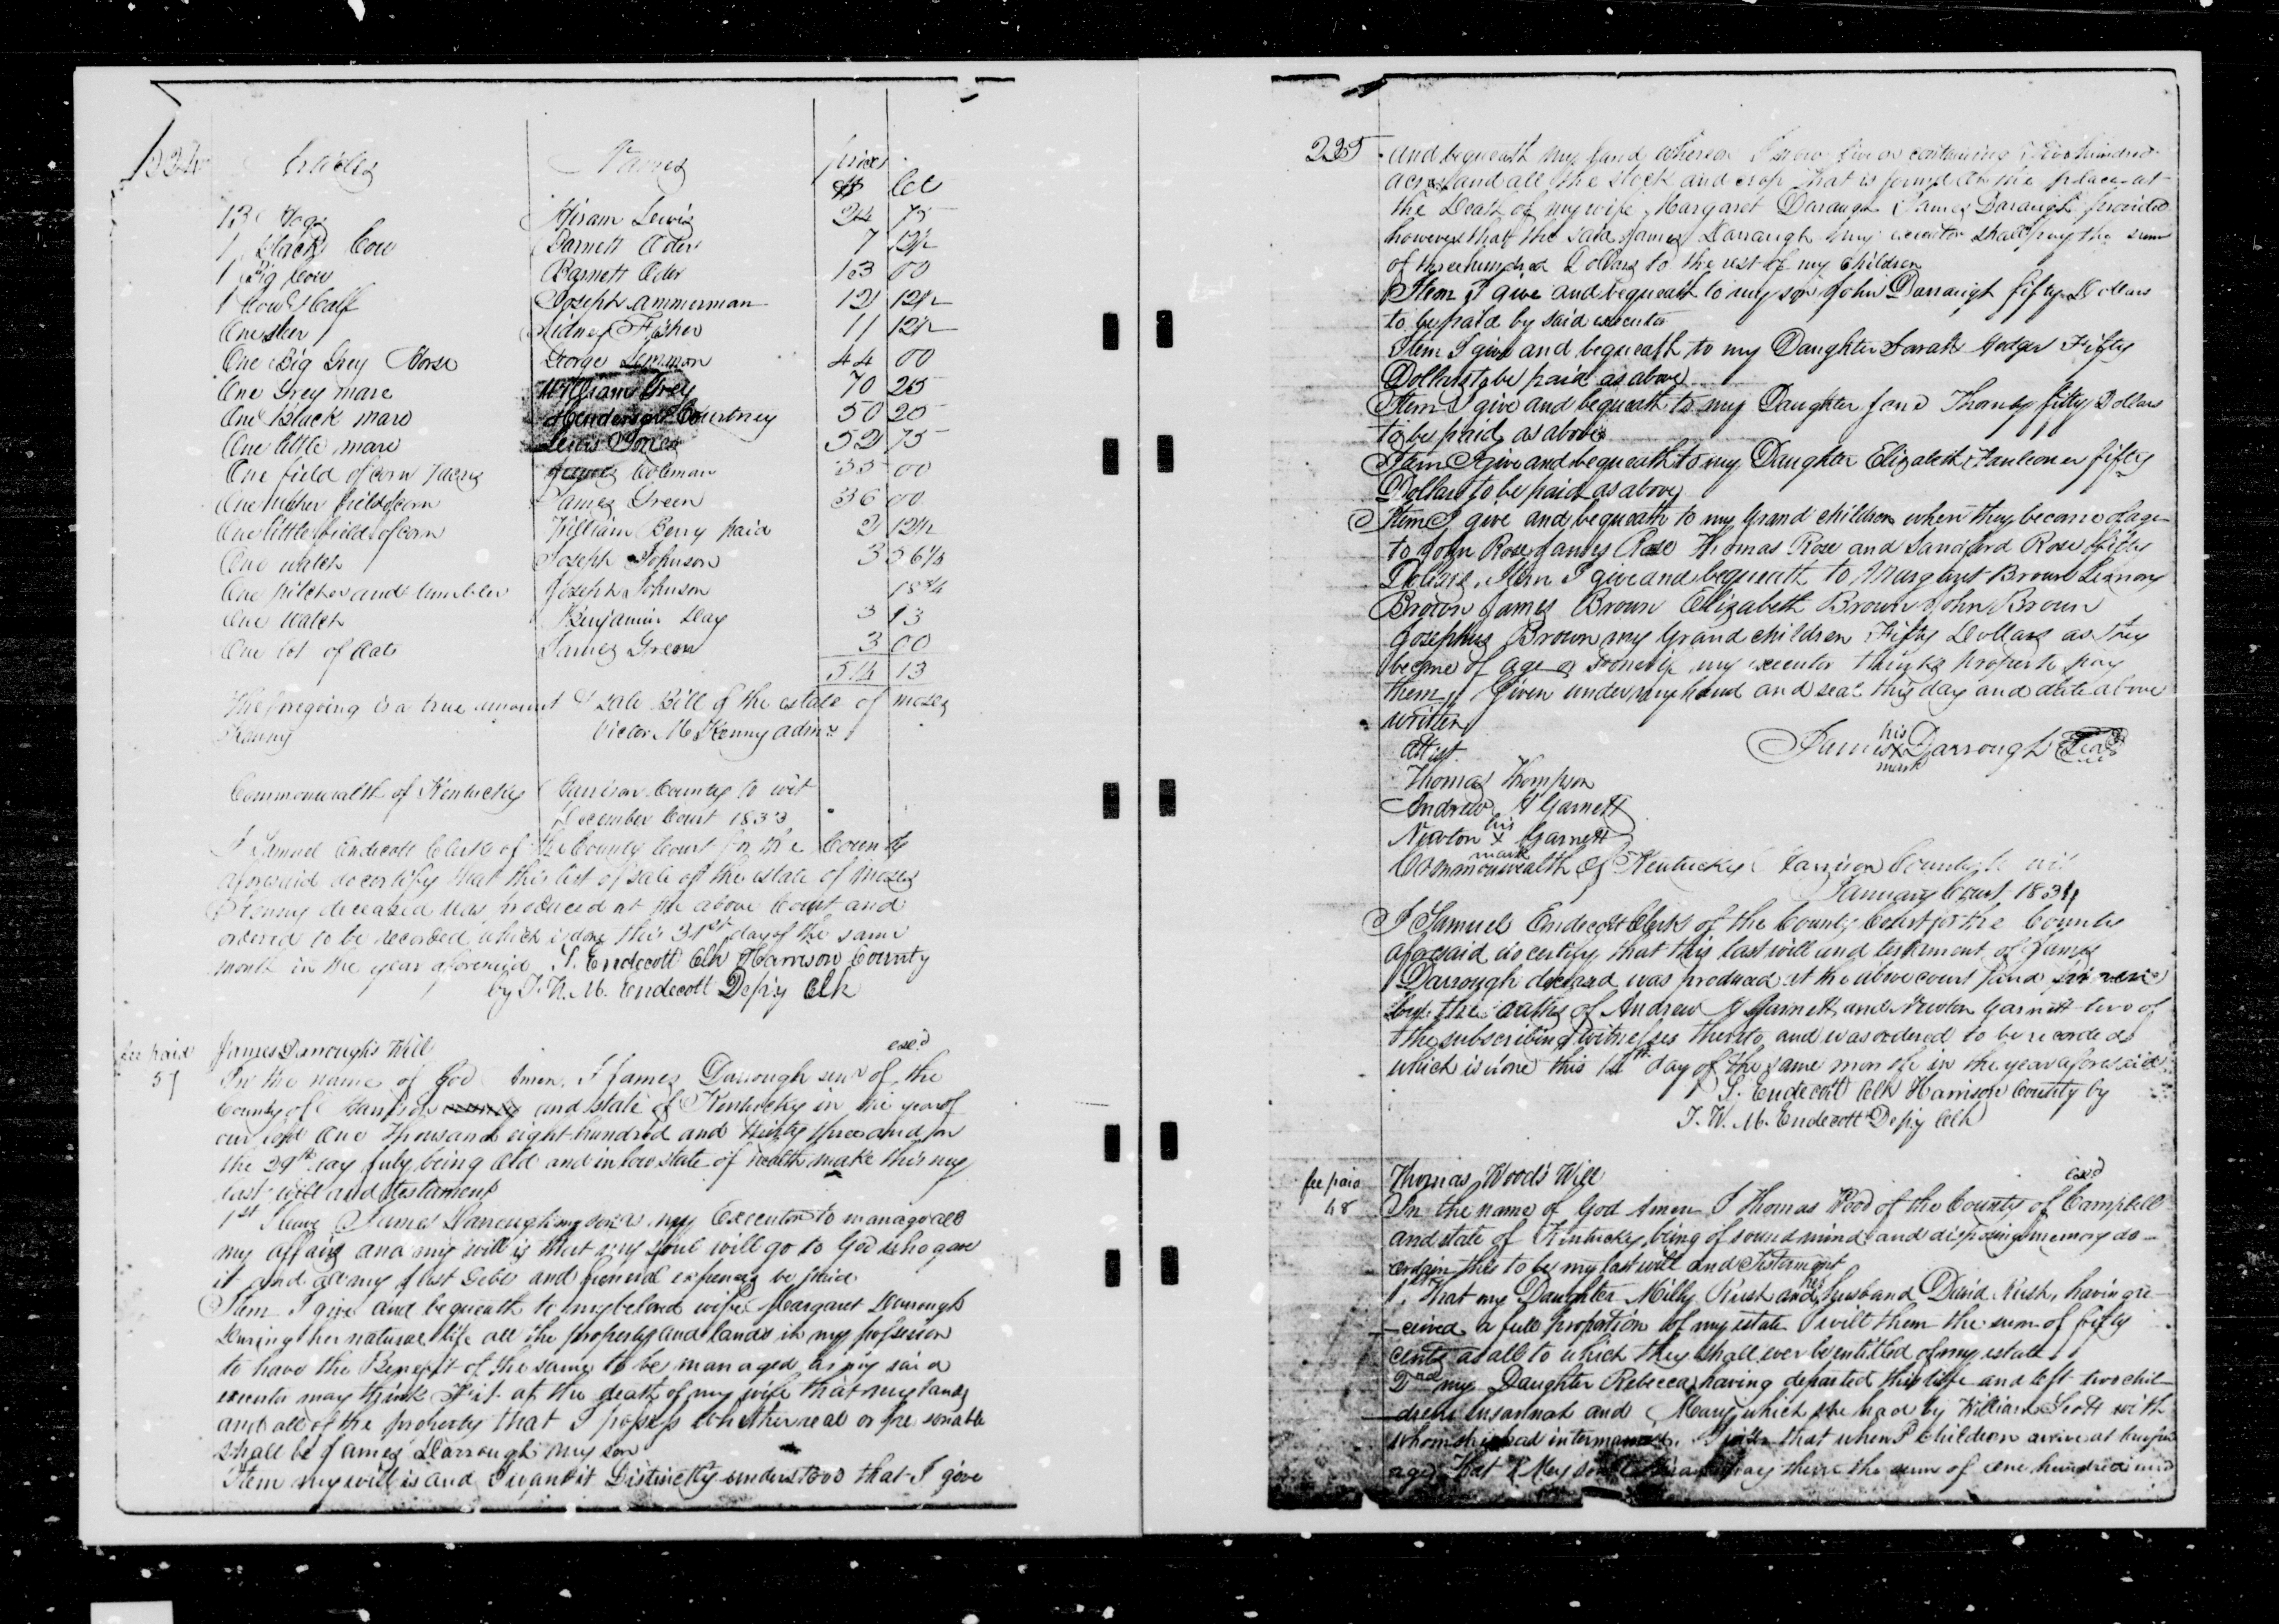 234
Articles Names prices
$ Cts
13 Hogs Hiram Lewis 24 75
1 black Cow Barnett Oder 7 12½
1 Big Cow Barnett Oder 13 00
1 Cow & Calf Joseph Ammerman 12 12½
One steer Sidney Fisher 11 12½
One Big Grey Horse George Lemmon 44 00
One Grey mare William Grey 70 25
One Black mare Henderson Courtney 50 25
One little mare Lewis Jones 52 75
One field of corn James Coleman 35 00
One other field of corn James Green 36 00
One little field of corn William Berry paid 2 12½
One watch Joseph Johnson 3 56¼
One pitcher and tumbler Joseph Johnson 18¾
One watch Benjamin Day 3 13
One lot of oats James Green 3 00
514 13
The foregoing is a true amount & sale Bill of the estate of moses
Victor McKenny admr
Commonwealth of Kentucky Harrison County to wit
December Court 1833
I Samuel Endecott Clerk of the County Court for the County
aforesaid do certify that this list of sale of the estate of Moses
deceased was produced at the above Court and
ordered to be recorded which is done this 31st day of the same
month in the year aforesaid S. Endecott Clk Harrison County
by T. W. M. Endecott Depty Clk
fee paid James Darrough's Will exed
57 In the name of God Amen. I James Darrough senr of the
County of Harrison and state of Kentucky in the year of
our lord One Thousand eight hundred and thirty three and on
the 29th day July being old and in low state of health make this my
last will and testament
1st I leave James Darrough my son as my Executor to manage all
my affairs and my will is that my soul will go to God who gave
it and all my just Debts and funeral expences be paid
Item I give and bequeath to my beloved wife Margaret Darrough
During her natural life all the property and lands in my possession
to have the Benefit of the same to be managed as my said
executor may think Fit at the death of my wife that my lands
and all of the property that I possess Whether real or personable
shall be James Darrough my son
Item my will is and I want it Distinctly understood that I give
235 and bequeath my land whereon I now live on containing hundred
acres and all the stock and crop that is found on the place at
the Death of my wife Margaret Daraugh James Daraugh provided
however that the said James Darraugh my executor shall pay the sum
of three hundred Dollars to the rest of my children
Item I give and bequeath to my son John Darraugh fifty Dollars
to be paid by said executor
Item I give and bequeath to my Daughter Sarah Hedger Fifty
Dollars to be paid as above
Item I give and bequeath to my Daughter Jane Thornby fifty Dollars
to be paid as above
Item I give and bequeath to my Daughter Elizabeth Faulconer fifty
Dollars to be paid as above
Item I give and bequeath to my Grand children when they become of age
to John Rose James Rose Thomas Rose and Sandford Rose fifty
Dollars. Item I give and bequeath to Margaret Brown
Brown James Brown Elizabeth Brown John Brown
Josephus Brown my Grand children Fifty Dollars as they
become of age or sooner if my executor thinks proper to pay
them Given under my hand and seal this day and date above
written
his
Attest. James X Darrough Seal
mark
Thomas Thompson
Andrew H Garnett
his
Newton X Garnett
mark
Commonwealth of Kentucky Harrison County to wit
January Court 1834
I Samuel Endecott Clerk of the County Court for the County
aforesaid do certify that this last will and testament of James
Darrough deceased was produced at the above court and proven
by the oaths of Andrew H Garnett and Newton Garnett two of
the subscribing witnesses thereto and was ordered to be recorded
which is done this 14th day of the same month in the year aforesaid
S. Endecott Clk Harrison County by
T. W. M. Endecott Depty Clk
fee paid Thomas Wood's Will exed
48 In the name of God Amen I Thomas Wood of the County of Campbell
and state of Kentucky being of sound mind and disposing memory do
ordain this to be my last will and Testament
1st That my Daughter Milly Rush and her husband David Rush, having re-
-ceived a full proportion of my estate I will them the sum of fifty
cents as all to which they shall ever be entitled of my estate
2nd my Daughter Rebecca having departed this life and left two chil-
-dren Susannah and Mary which she had by William Scott with
whom she had intermarried. I wish that when children arrive at
age that pay them the sum of one hundred and